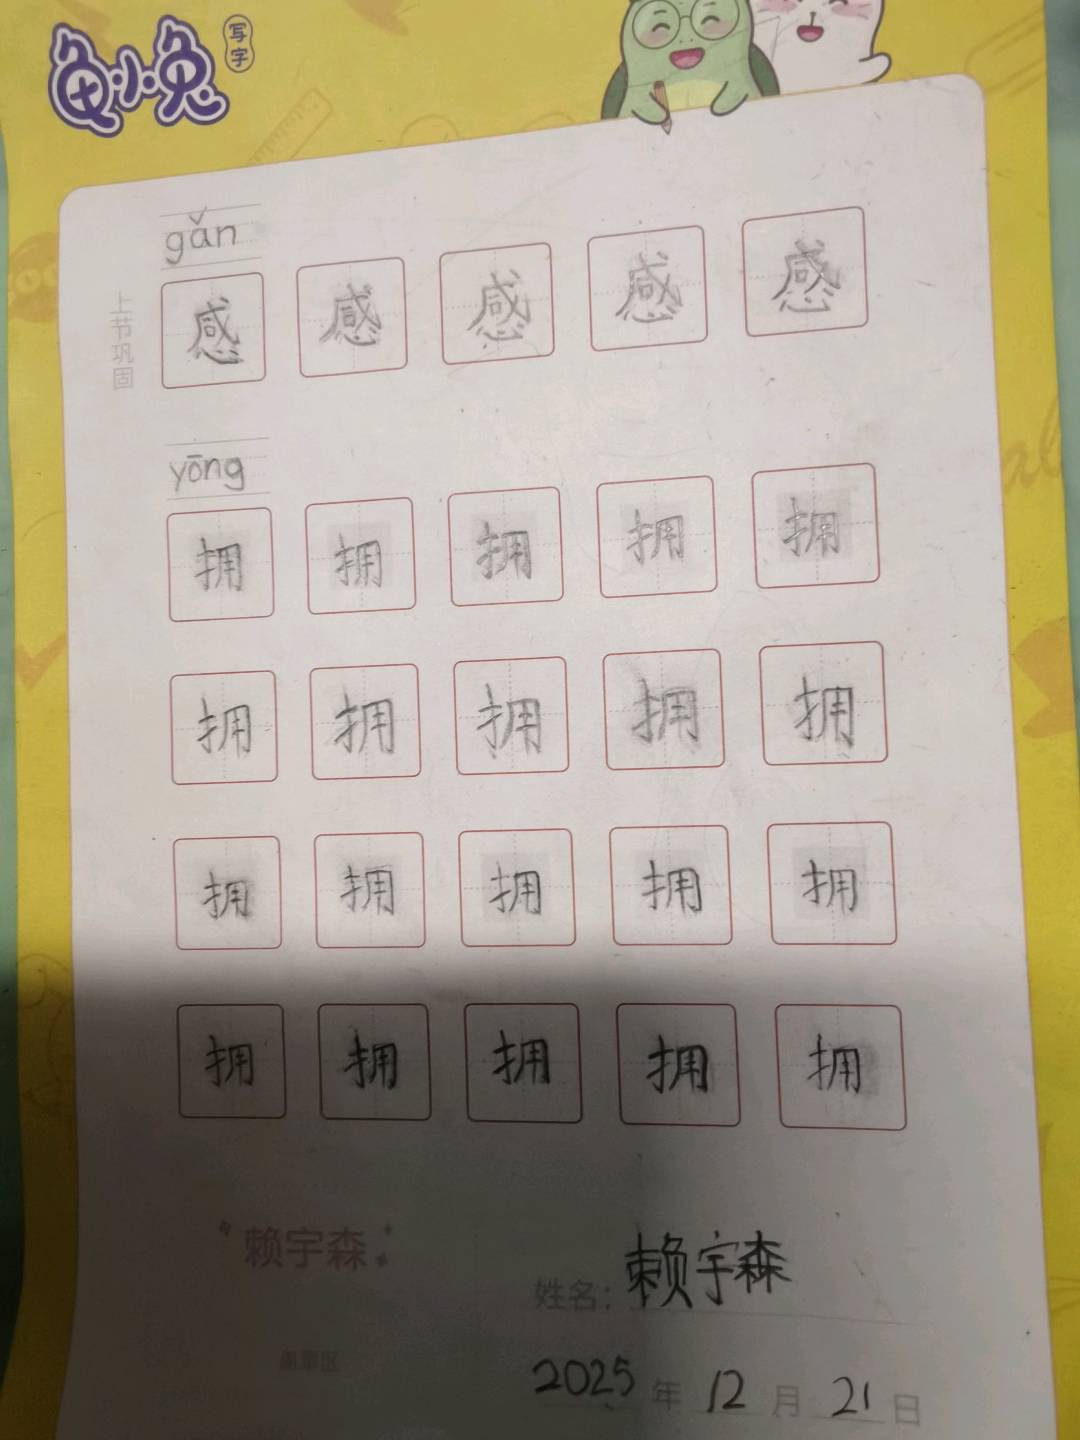 龟小兔
写字
gǎn
上节巩固
感 感 感 感 感
yōng
拥 拥 拥 拥 拥
拥 拥 拥 拥 拥
拥 拥 拥 拥 拥
拥 拥 拥 拥 拥
赖宇森
姓名：赖宇森
2025 年 12 月 21 日